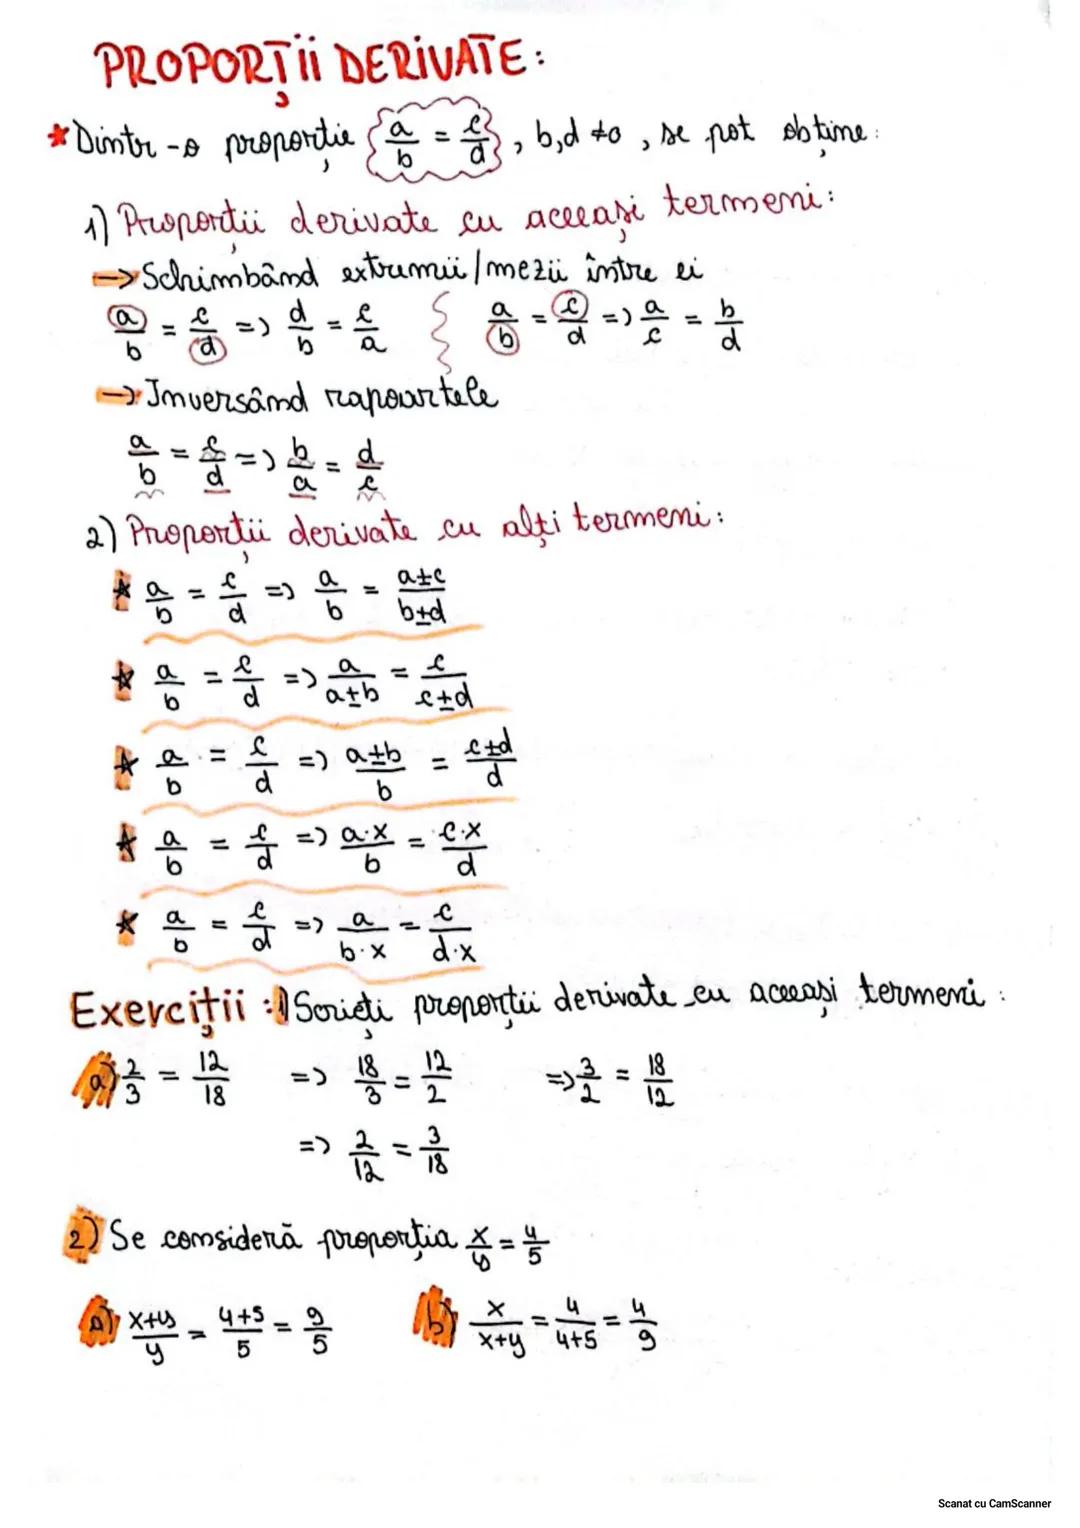 PROPORȚII DERIVATE:
*Dintr-o proporție a/b = c/d, b,d ≠0, se pot obține:
1) Proporții derivate cu aceeași termeni:
→ Schimbând extremii/mezii între ei
a/b = c/d => d/b = c/a   a/b = c/d => a/c = b/d
→ Inversând rapoartele
a/b = c/d => b/a = d/c
2) Proporții derivate cu alți termeni:
* a/b = c/d => a/b = a±c/b±d
* a/b = c/d => a/a±b = c/c±d
* a/b = c/d => a±b/b = c±d/d
* a/b = c/d => a·x/b = c·x/d
* a/b = c/d => a/b·x = c/d·x
Exerciții: 1) Scrieți proporții derivate cu aceeași termeni:
a) 2/3 = 12/18 => 18/3 = 12/2 => 3/2 = 18/12
=> 2/12 = 3/18
2) Se consideră proporția x/y = 4/5
a) x+y/y = 4+5/5 = 9/5   b) x/x+y = 4/4+5 = 4/9
Scanat cu CamScanner